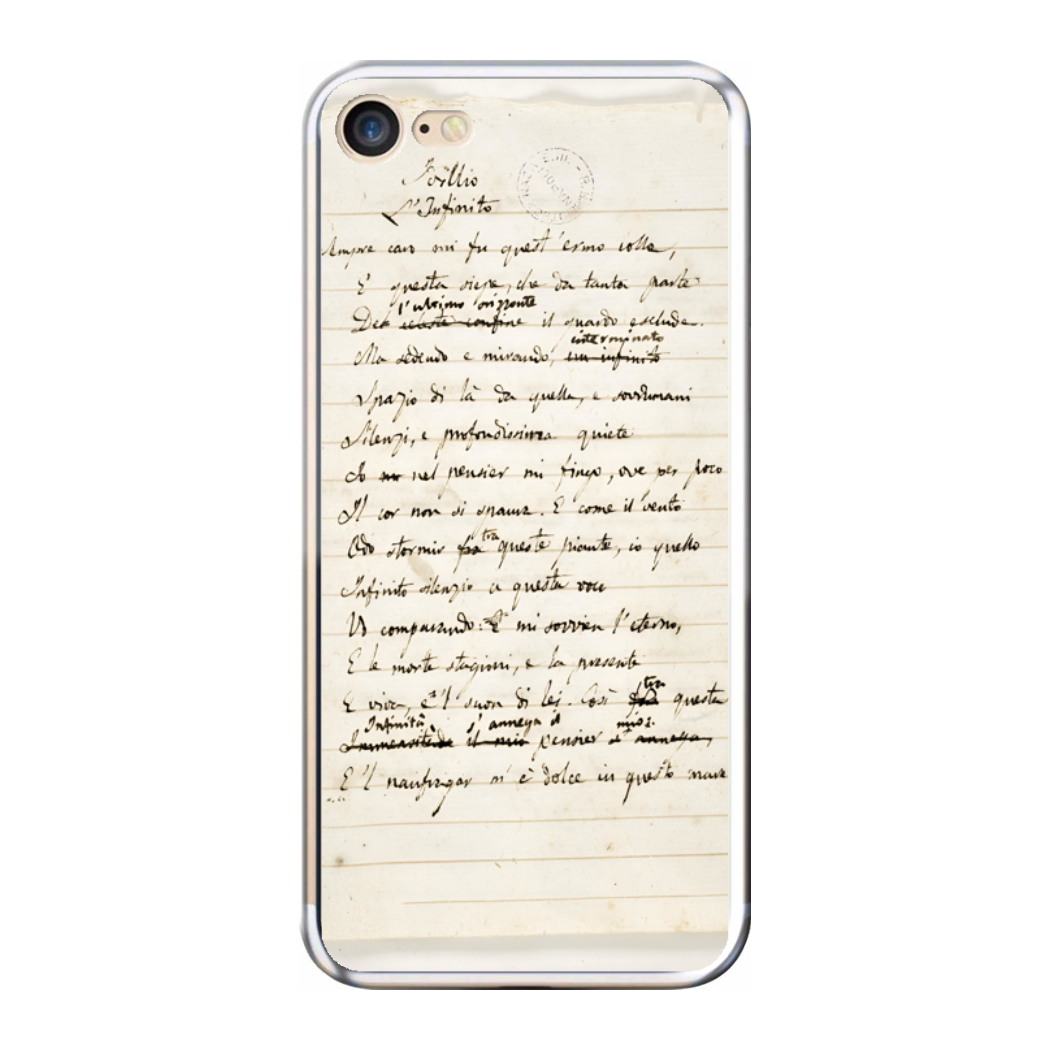 Idillio
L'Infinito
Sempre caro mi fu quest'ermo colle,
E questa siepe, che da tanta parte
l'ultimo orizzonte
Del celeste confine il guardo esclude.
interminato
Ma sedendo e mirando, un infinito
Spazio di là da quella, e sovrumani
Silenzi, e profondissima quiete
Io nel pensier mi fingo, ove per poco
Il cor non si spaura. E come il vento
tra
Odo stormir fra queste piante, io quello
Infinito silenzio a questa voce
Vo comparando: E mi sovvien l'eterno,
E le morte stagioni, e la presente
E viva, e 'l suon di lei. Così tra questa
Infinità s'annega il mio:
Immensità de il mio pensier s'annega,
E 'l naufragar m'è dolce in questo mare